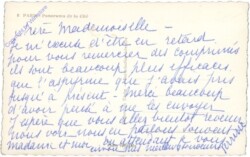 8 PARIS Panorama de la Cité
Chère Mademoiselle -
Je m'excuse d'être en retard
pour vous remercier des comprimés
ils sont beaucoup plus efficaces
que l'aspyrine que j'avais pris
jusqu'à présent. Merci beaucoup
d'avoir pensé à me les envoyer
J'espère que vous allez bientôt
nous nous en parlons souvent
madame et moi en attendant